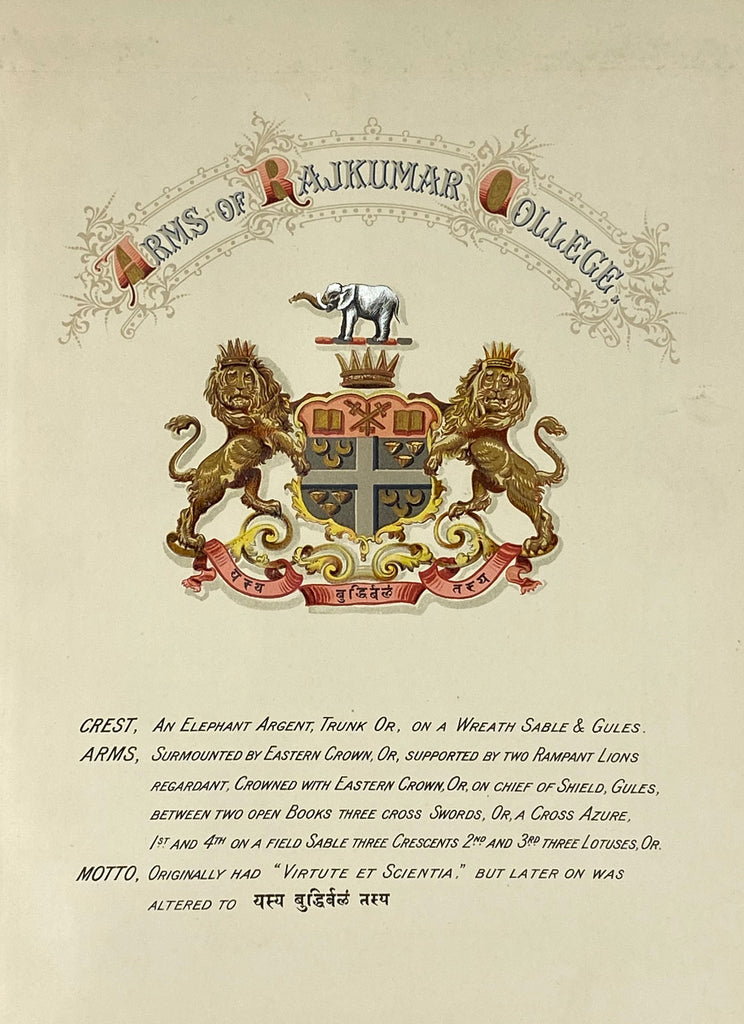 ARMS OF RAJKUMAR COLLEGE,
यस्य बुद्धिर्बलं तस्य
CREST, AN ELEPHANT ARGENT, TRUNK OR, ON A WREATH SABLE & GULES.
ARMS, SURMOUNTED BY EASTERN CROWN, OR, SUPPORTED BY TWO RAMPANT LIONS
REGARDANT, CROWNED WITH EASTERN CROWN, OR, ON CHIEF OF SHIELD, GULES,
BETWEEN TWO OPEN BOOKS THREE CROSS SWORDS, OR, A CROSS AZURE,
1ST AND 4TH ON A FIELD SABLE THREE CRESCENTS 2ND AND 3RD THREE LOTUSES, OR.
MOTTO, ORIGINALLY HAD "VIRTUTE ET SCIENTIA." BUT LATER ON WAS
ALTERED TO यस्य बुद्धिर्बलं तस्य